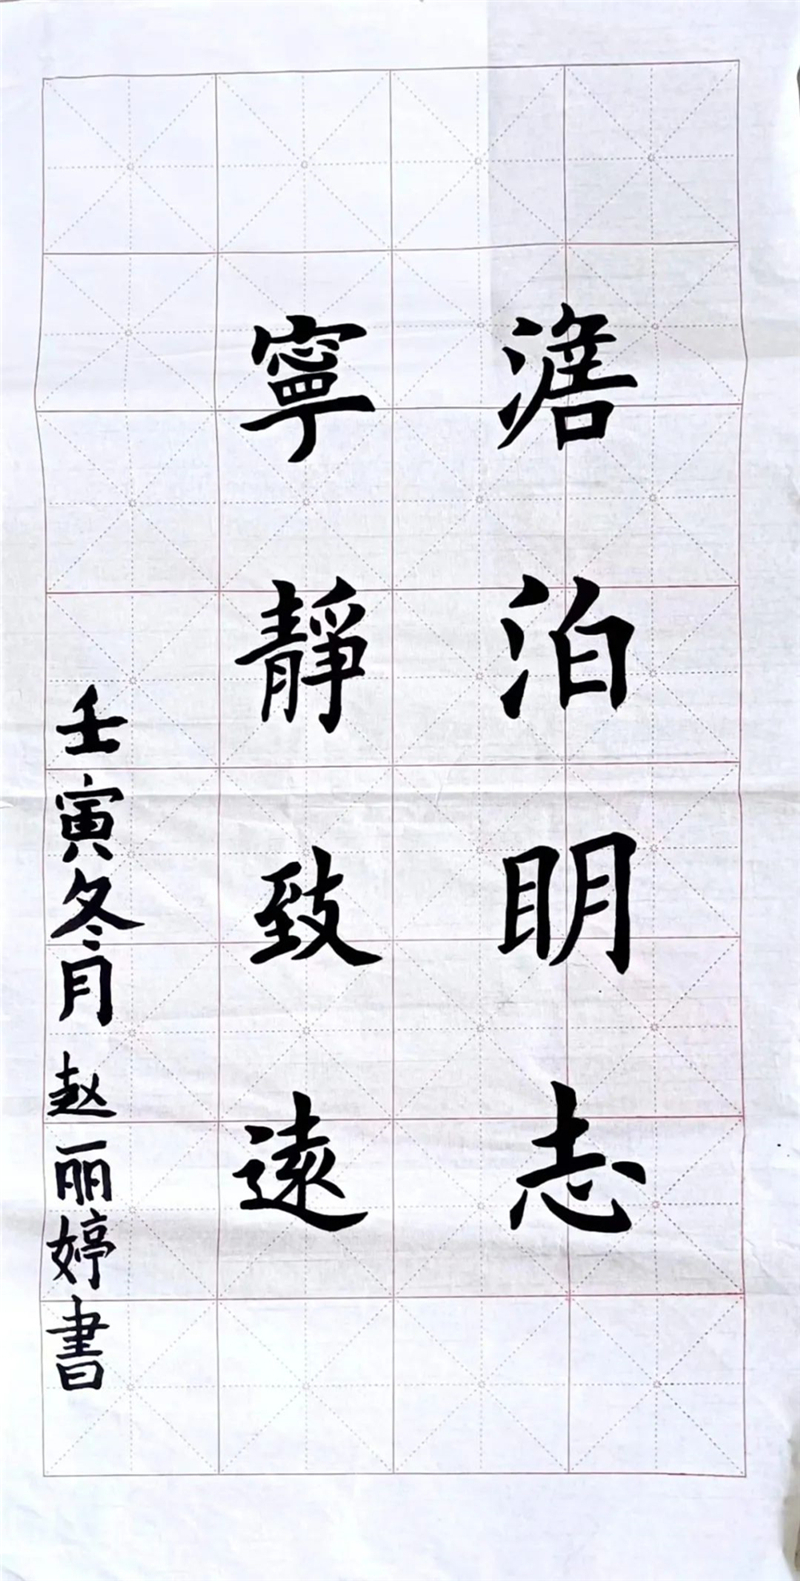 澹泊明志
寧靜致遠
壬寅冬月赵丽婷書